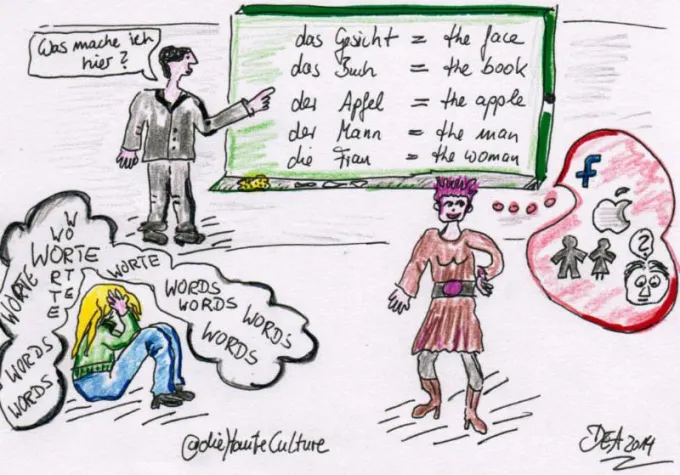 Was mache ich
hier?
das Gesicht = the face
das Buch = the book
der Apfel = the apple
der Mann = the man
die Frau = the woman
f
?
WORTE
WORTE
WORTE
WORTE
WORTE
WORDS
WORDS
WORDS
WORDS
WORDS
WORDS
@dieHauteCulture
DEA 2014